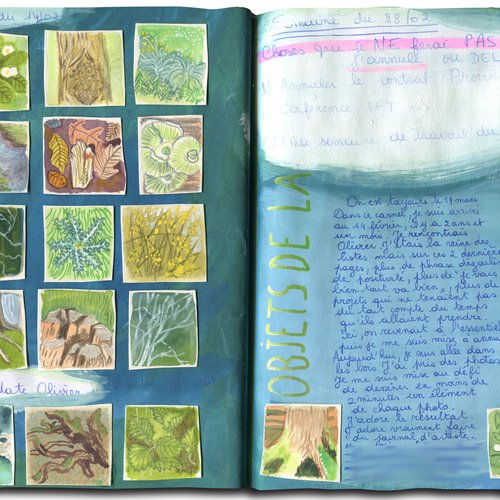 du 14/02
date Olivier
Semaine du 28/02
Choses que je NE ferai PAS
j'annull ou DEL
Annuler le contrat
Conference EFT ...
Mai semaine de travail du
OBJETS DE LA
On est toujours le 14 mars
Dans ce carnet, je suis arrivée
au 14 février, il y a 2 ans et
un mois. Je rencontrais
Olivier. J'étais la reine des
listes mais sur ces 2 dernières
pages, plus de phrase dégoulinante
de positivité, plus de "je vais
bien tout va bien", plus de
projets qui ne tenaient pas
du tout compte du temps
qu'ils allaient prendre.
Ici, on revenait à l'essentiel
puis je me suis mise à annuler
Aujourd'hui, je suis allée dans
les bois. J'ai pris des photos
Je me suis mise au défi
de dessiner en moins de
2 minutes un élément
de chaque photo.
J'adore le résultat.
J'adore vraiment faire
du journal d'artiste.